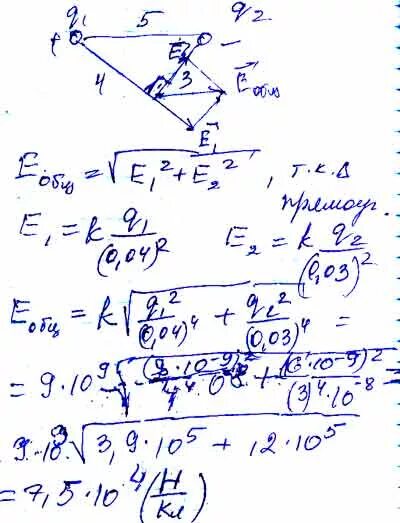 q₁ 5 q₂
+ E₂ −
4 3 E⃗общ
E⃗₁
Eобщ = √(E₁² + E₂²), т.к. Δ
прямоуг.
E₁ = k q₁/(0,04)² E₂ = k q₂/(0,03)²
Eобщ = k √(q₁²/(0,04)⁴ + q₂²/(0,03)⁴) =
= 9·10⁹ √((8·10⁻⁹)²/4⁴·10⁻⁸ + (6·10⁻⁹)²/(3)⁴·10⁻⁸) =
9·10⁹ √(3,9·10⁵ + 12·10⁵)
= 7,5·10⁴ (Н/Кл)